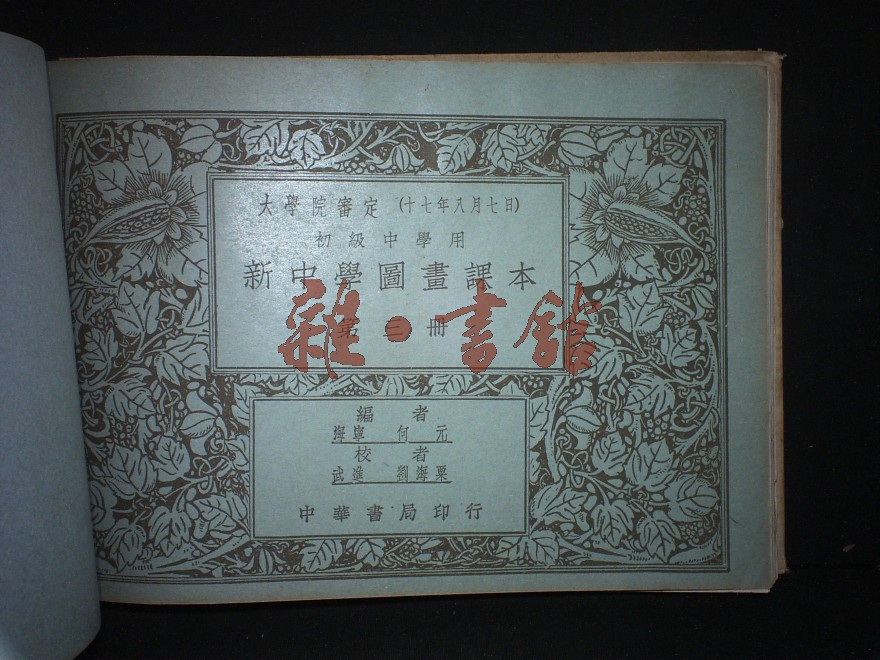 大學院審定（十七年八月七日）
初級中學用
新中學圖畫課本
第三冊
雜·書館
編者
海寧 何元
校者
武進 劉海粟
中華書局印行